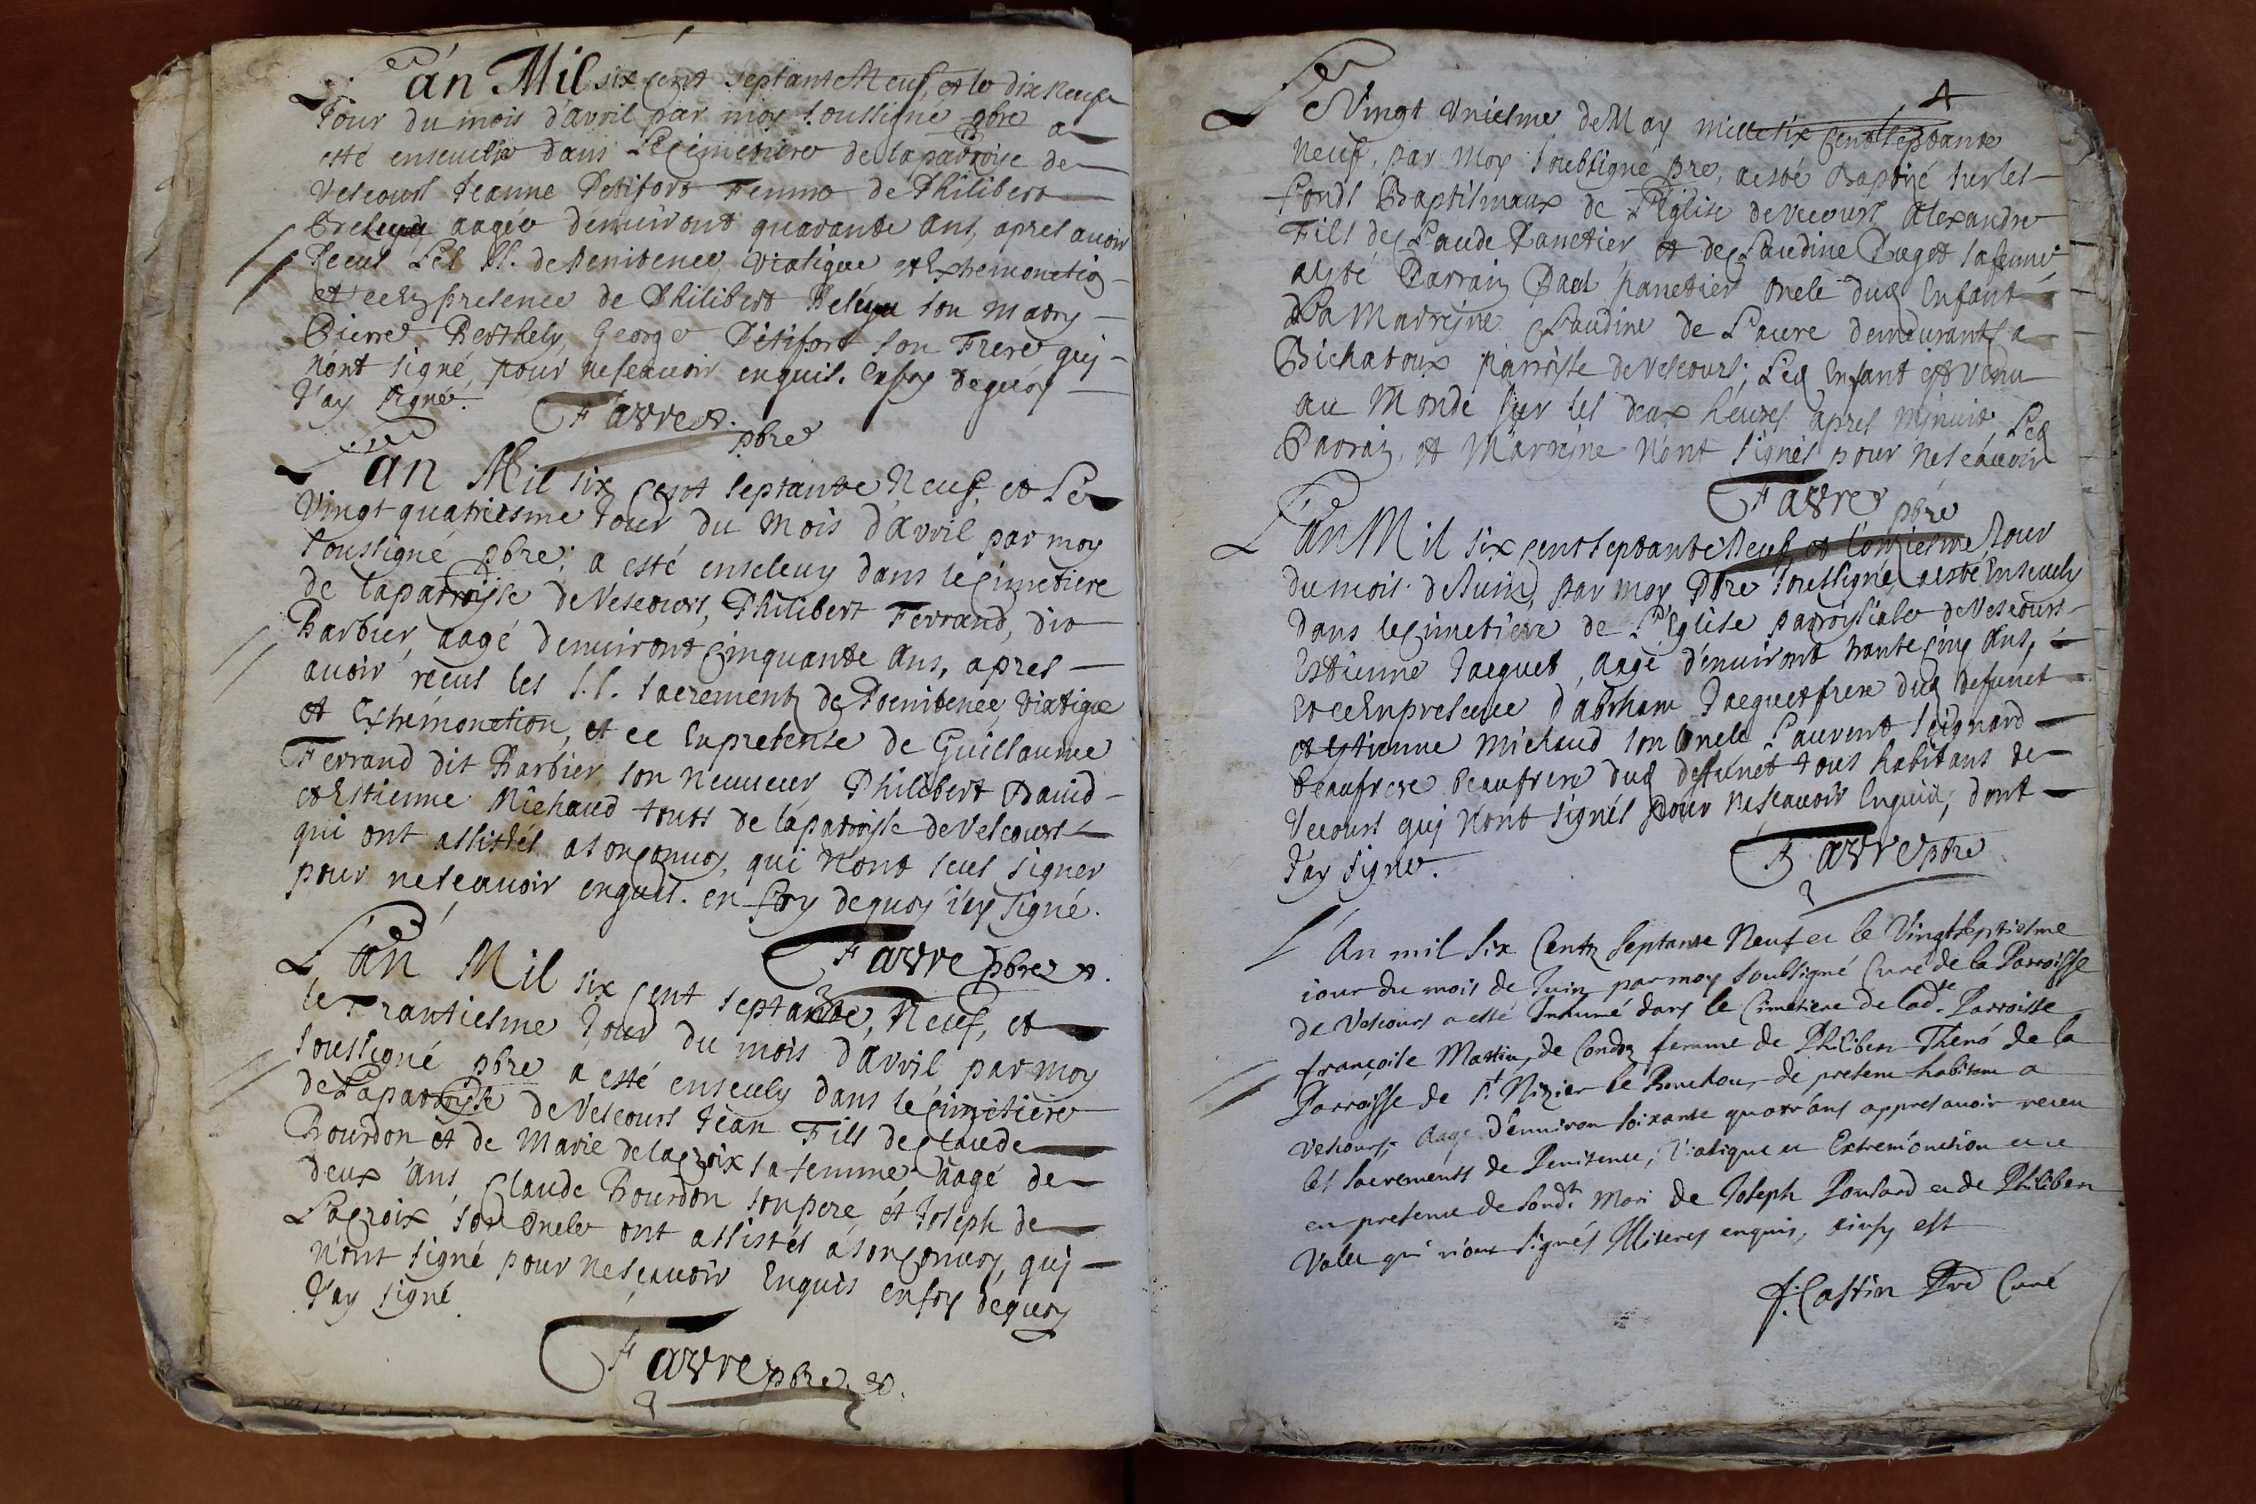 L'an Mil six cent septante Neuf, et le dix Neuf
Jour du mois d'avril par moy soussigné pbre a
esté enseuely dans Le cimetiere de la parroise de
Vescours Jeanne Petifort Femme de Philibert
aagée denuiront quarante ans, apres auoir
Receus Les SS. de Penitence, Viatique et Extremonction
et ce en presence de Philibert son mary
Pierre Berthely, George Petifort son Frere, quj
n'ont signé, pour ne scauoir enquis. En foy de quoy
J'ay signé. Favre
pbre
L'an Mil six cent septante Neuf, et Le
Vingt quatriesme Jour du Mois d'avril par moy
soussigné pbre; a esté enseleuy dans le cimetiere
de la parroisse de Vescours, Philibert Ferrand, dit
Barbier, aagé denuiront cinquante Ans, apres
auoir reçus les S.S. sacrementz de Poenitence, Viatique
et Extremonction, et ce En presense de Guillaume
Ferrand dit Barbier, son neuueur Philibert Dauid
et Estienne Michaud touts de la parroisse de Vescours
qui ont assistés a son conuoy, qui n'ont seus signer
pour ne scauoir enquis. en foy de quoy i'ay signé.
Favre pbre
L'an Mil six cent septante, Neuf, et
le Trantiesme Jour du mois d'avril, par moy
soussigné pbre a esté enseuely dans le cimetiere
de La parroisse de Vescours Jean Fils de Claude
Bourdon et de Marie de la croix sa femme aagé de
deux ans, Claude Bourdon son pere, et Joseph de
La croix son Oncle ont assistés a son conuoy, quj
n'ont signé pour ne scauoir Enquis en foy de quoy
J'ay signé
Favre pbre
4
Le Vingt Vniesme de May mille six cent septante
neuf, par moy soubsigné pre, a esté Baptisé sur les
Fonds Baptismaux de L'Eglise de Vecours Alexandre
Fils de Claude Panetier, et de Claudine Puget sa femme
a esté Parrain Paul panetier Oncle dud Enfant
et La Marreine Claudine de demeurants a
Bichatoux parroisse de Vescours; Led Enfant est venu
au Monde sur les deux heures apres Minuit, Led
Parrain, et Marreine n'ont signés pour ne scauoir
Favre pbre
L'an Mil six cent septante Neuf et l'onziesme Jour
du mois de Juin, par moy Pbre soussigné, a esté enseuely
Dans le cimetiere de L'Eglise parroissiale de Vescours
Estienne Jacquet, aagé d'enuiront trante cinq Ans,
et ce En presence d'abrham Jacquet frere dud defunct
et estienne Michaud son Oncle Laurent Soignard
beaufrere beaufrere dud defunct tous habitans de
Vecours quj n'ont signés pour ne scauoir Enquis, dont
J'ay signe. Favre pbre
L'An mil six Centz septante Neuf et le Vingtseptiesme
iour du mois de Juin par moy soubsigné Curé de la Parroisse
de Vescours a esté Inhumé dans le Cimetiere de lad.te Parroisse
françoise Martin, de femme de Philibert Thenó de la
Parroisse de S.t Nizier le Bouchou, de present habitant a
Vescours, Aagé d'enuiron soixante quatr'ans appres auoir receu
les sacrements de Penitence, Viatique et Extremonction et ce
en presence de sond.t Mari de Joseph Ponsard et de Philibert
qui n'ont signés Illiteres enquis, ainsy est
f. Castin Pre Curé